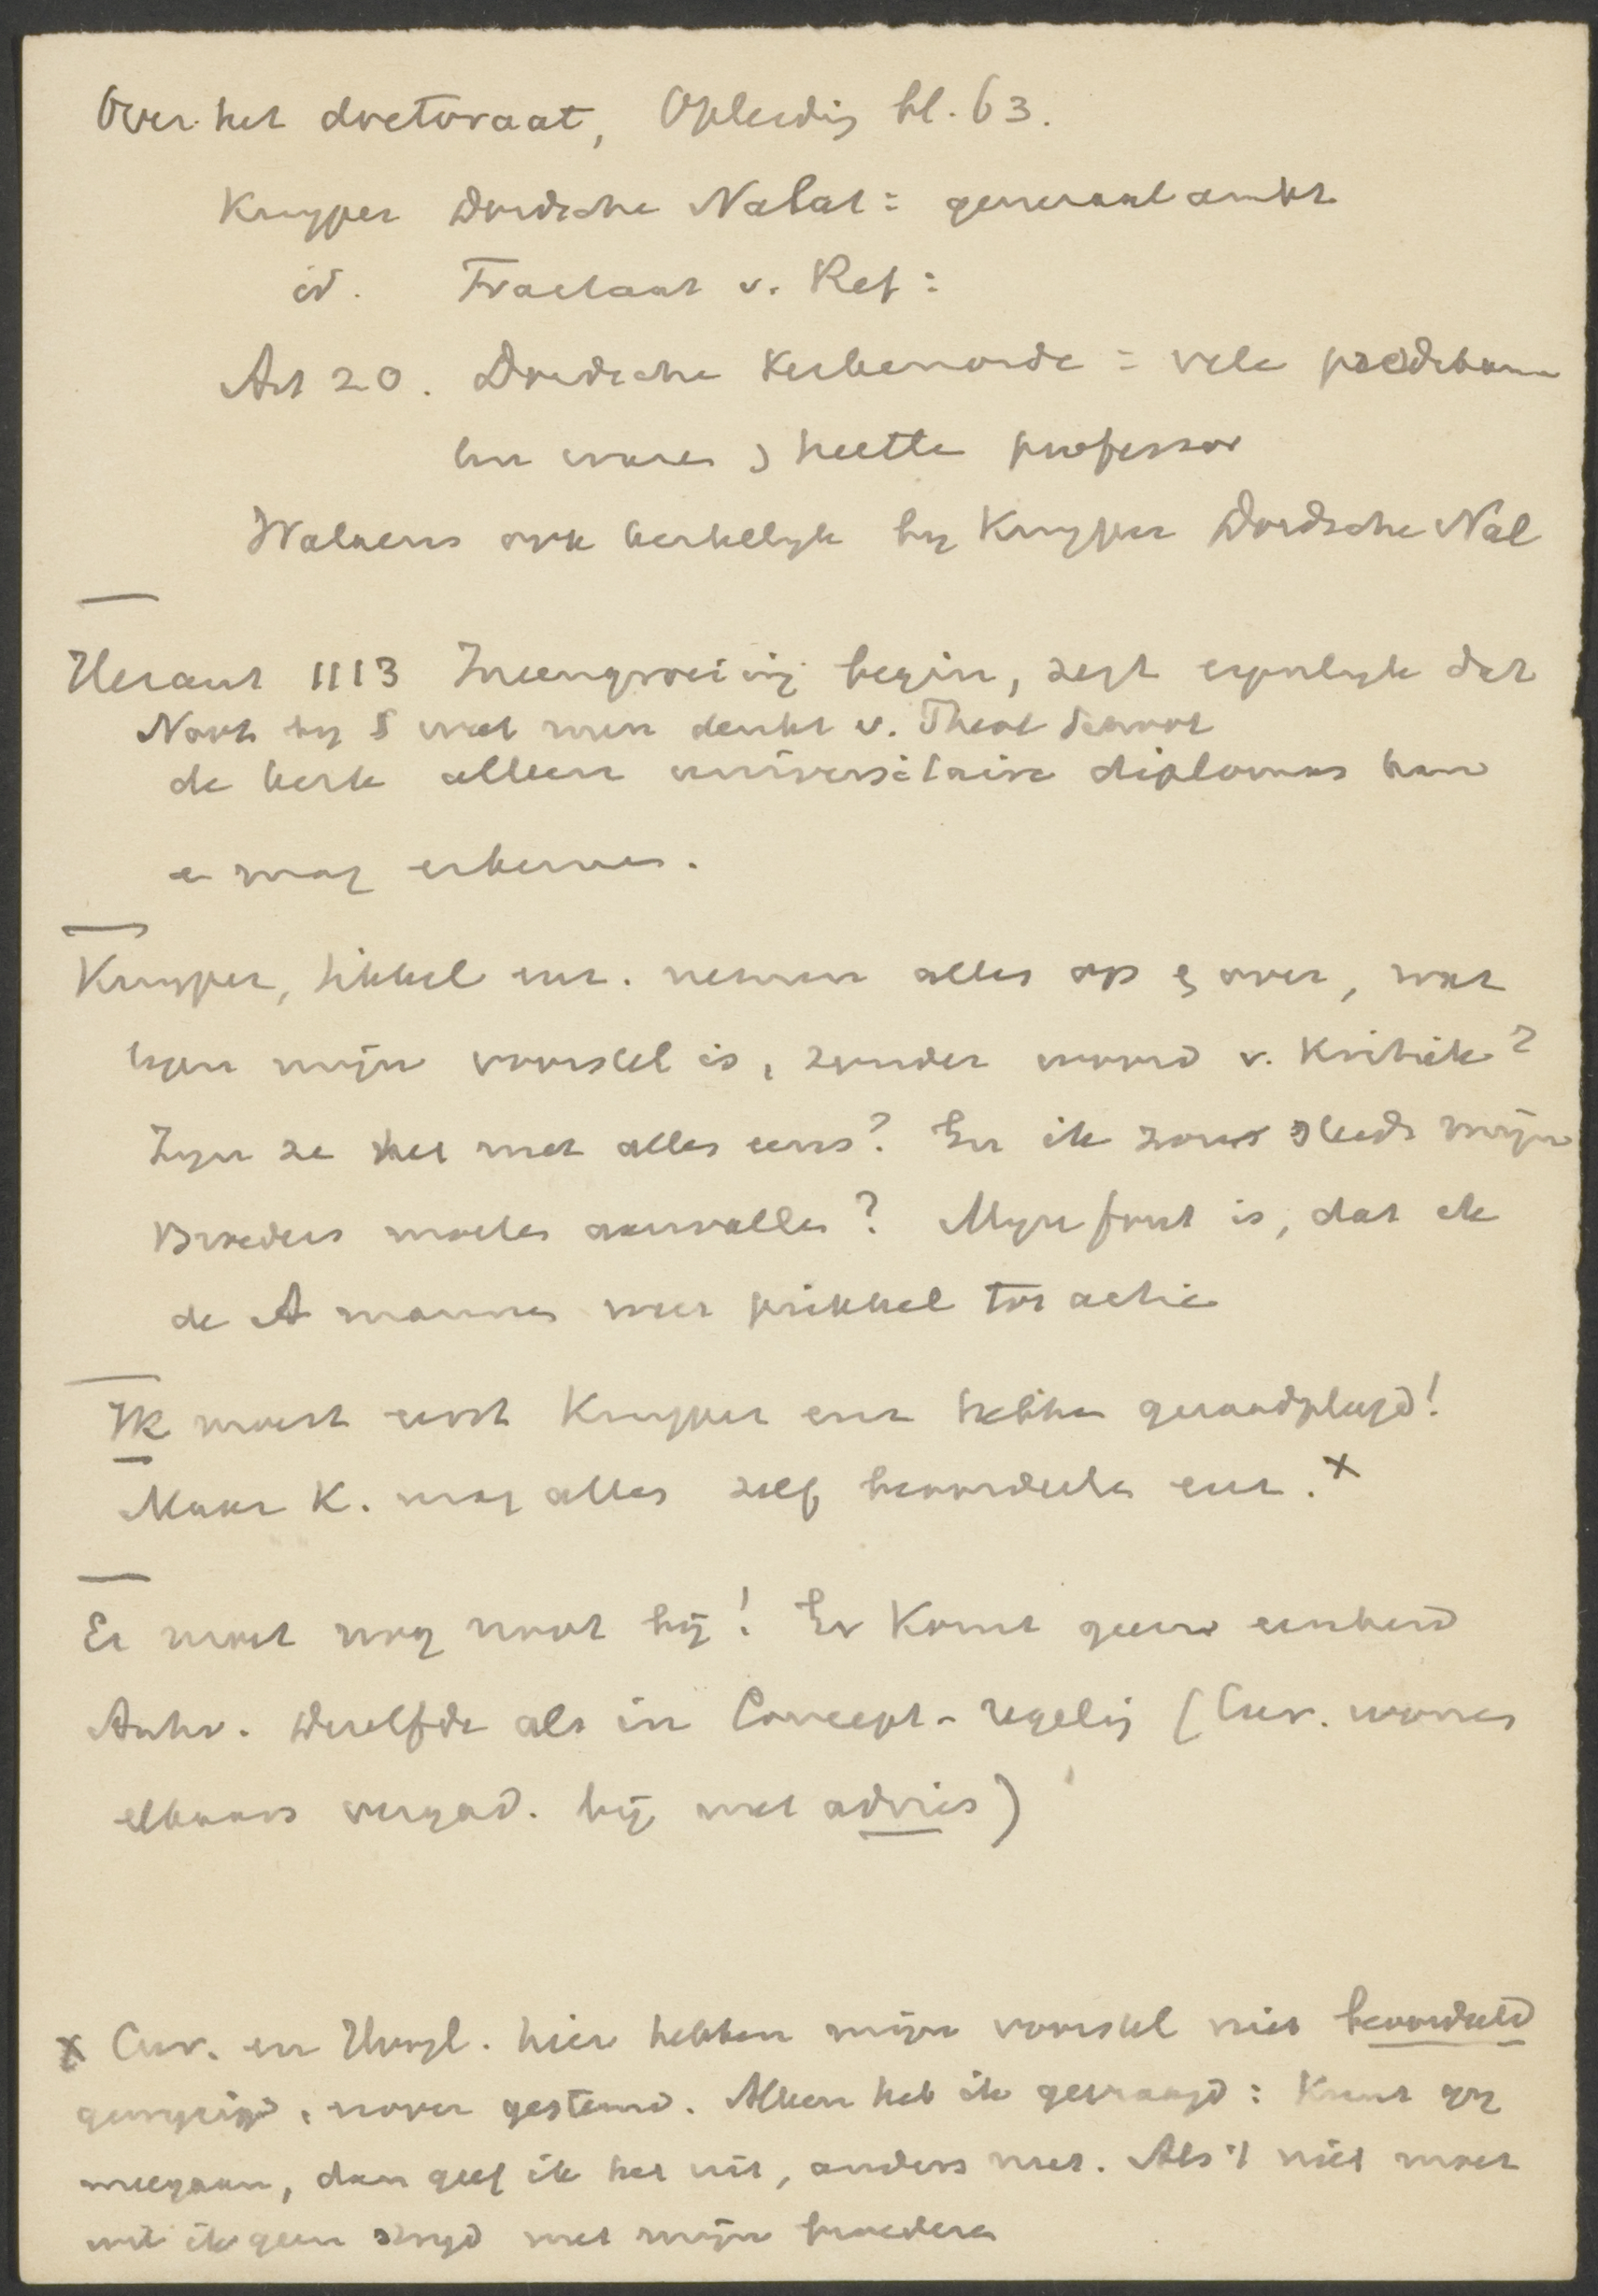 Over het doctoraat, Opleidig bl. 63.
Kuyper Dordsche Nalat: generaal ambt
id. Tractaat v. Ref:
Art 20. Dordsche Kerkenorde = vele predikan
ten waren heette professor
Walaeus ook kerkelyk by Kuyper Dordsche Nal
Heraut 1113 Ineengroeiing begin, zegt eigenlyk dat
Noot by § wat men denkt v. Theol School
de kerk alleen universitaire diplomas kan
e mag erkennen.
Kuyper, Sikkel enz. nemen alles op & over, wat
tegen mijn voorstel is, zonder woord v. Kritiek?
Zyn ze het met alles eens? En ik zou steeds mijn
Broeders moeten aanvallen? Myn fout is, dat ik
de A mannen niet prikkel tot actie
Ik moest eerst Kuyper enz hebben geraadpleegd!
Maar K. mag alles zelf beoordeelen enz. x
Er moet nog noot bij! Er Komt geen eenheid
Antw. Dezelfde als in Concept-regelig (Cur. wonen
elkaars vergad. bij met advies)
x Cur. en Hoogl. hier hebben mijn voorstel niet beoordeeld
gewyzigd, erover gestemd. Alleen heb ik gevraagd: Kunt gy
meegaan, dan geef ik het uit, anders niet. Als 't niet moet
wil ik geen stryd met mijn broeders